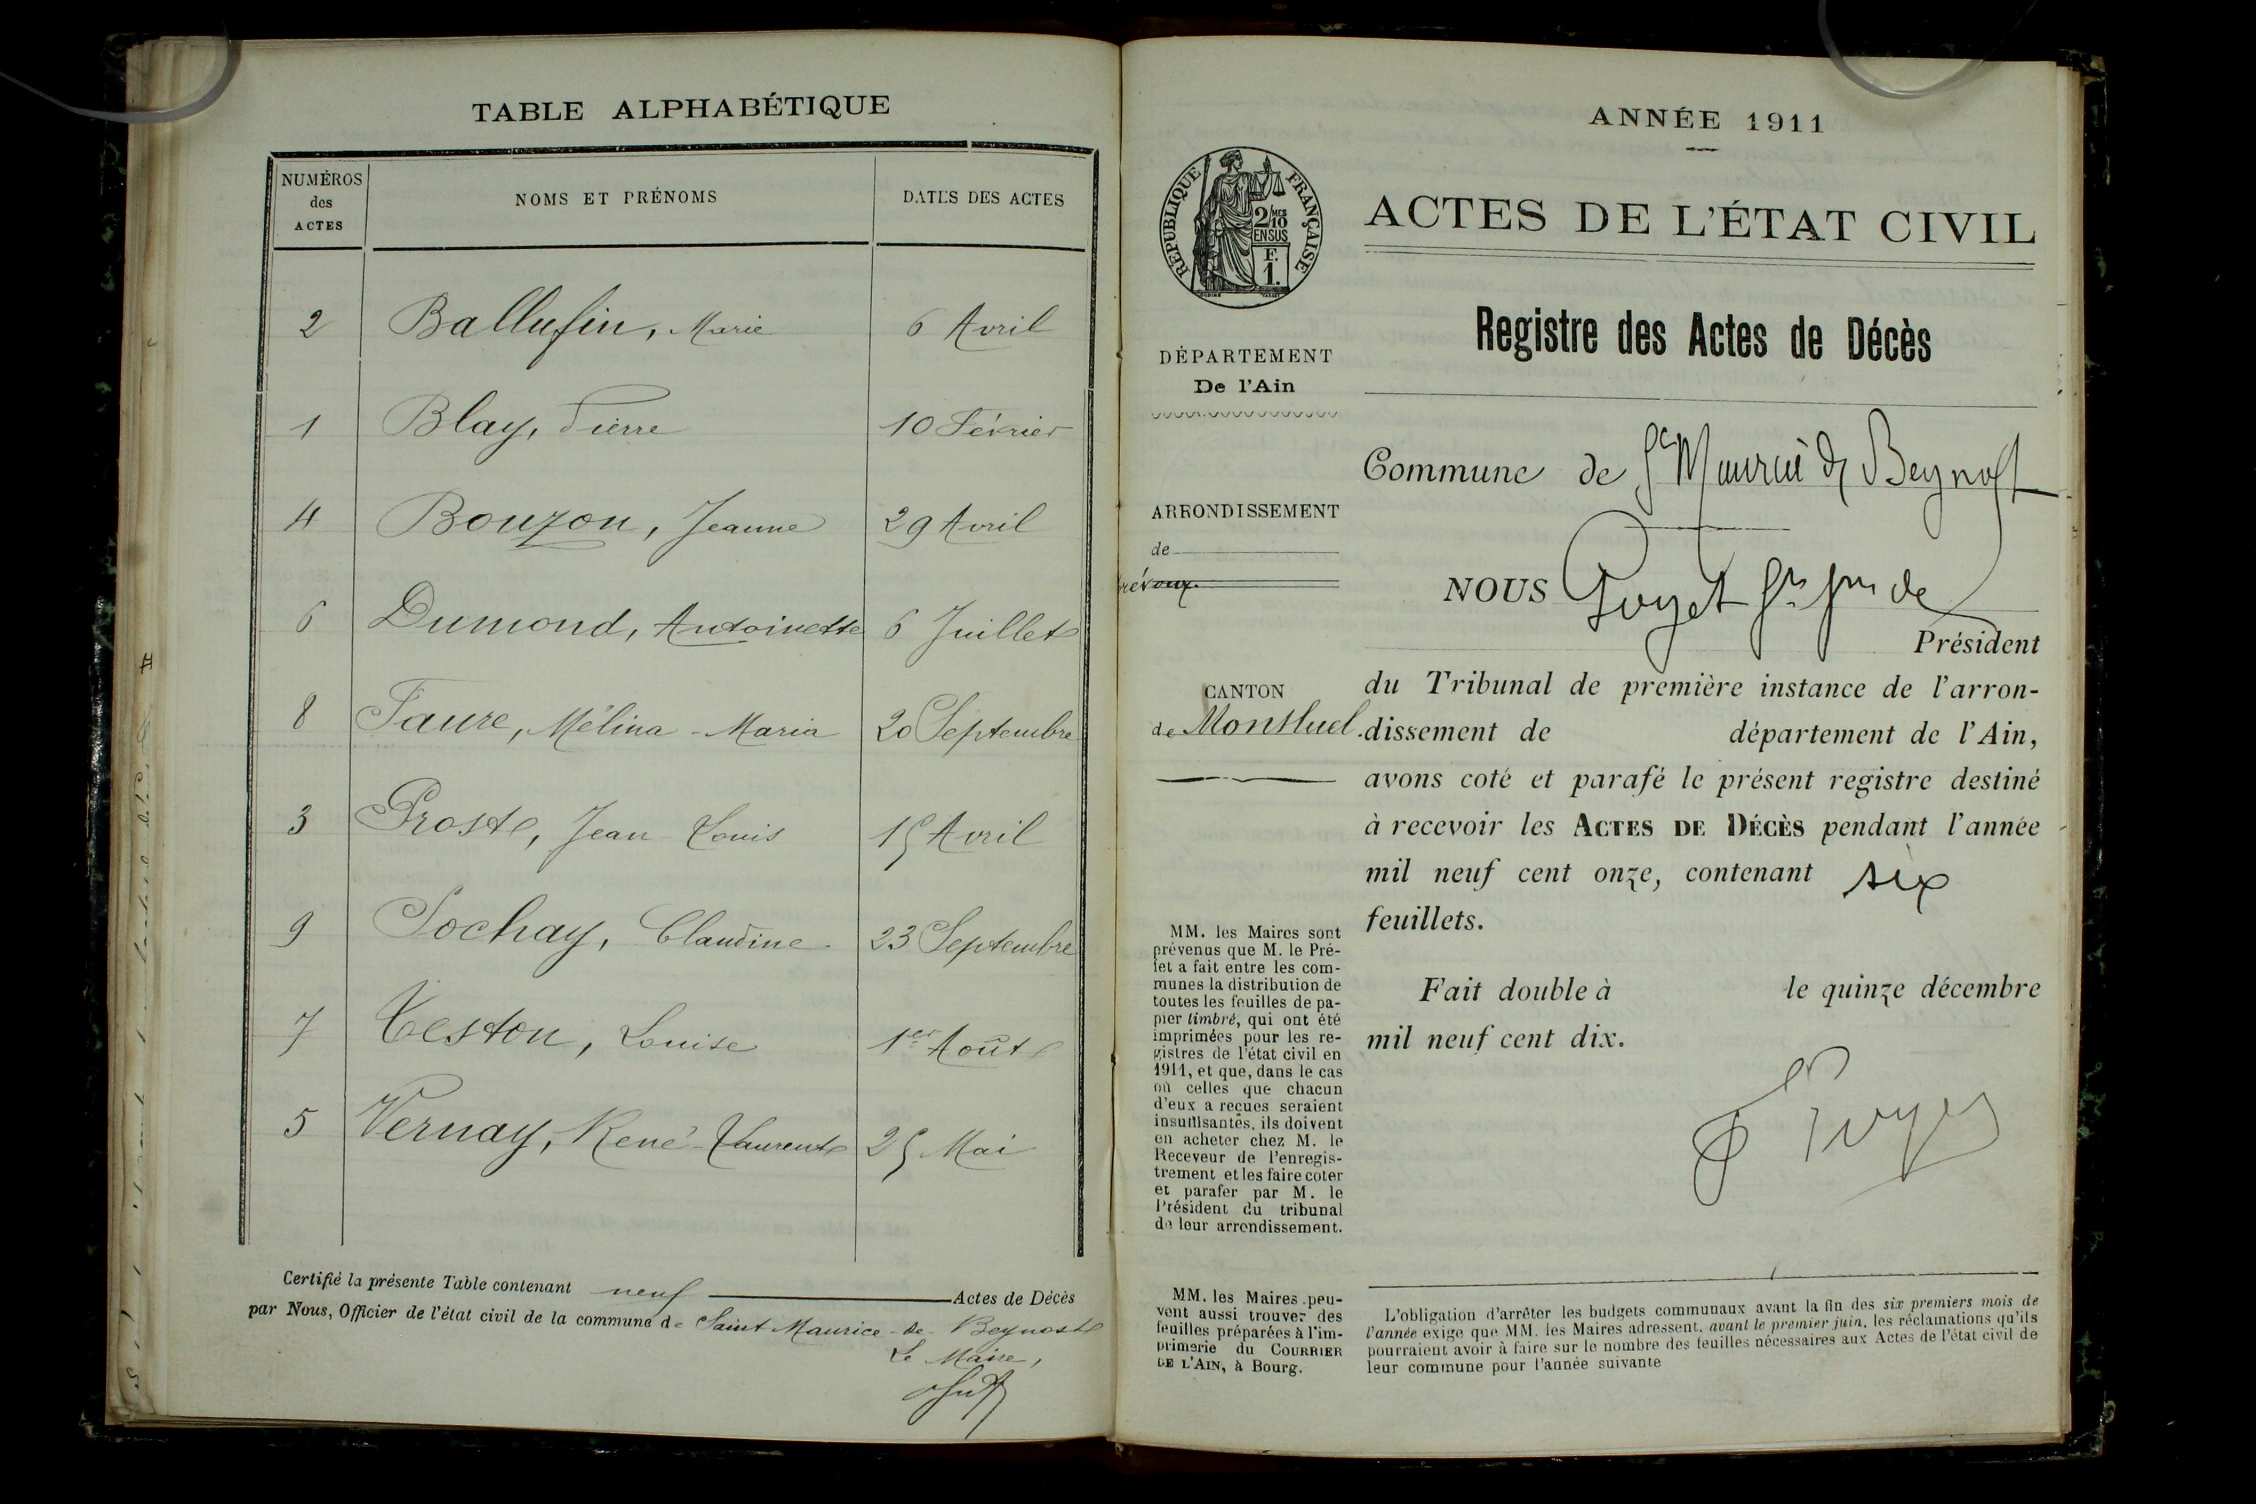 TABLE ALPHABÉTIQUE
NUMÉROS des ACTES
NOMS ET PRÉNOMS
DATES DES ACTES
2 Ballufin, Marie 6 Avril
1 Blay, Pierre 10 Février
4 Bouzon, Jeanne 29 Avril
6 Dumond, Antoinette 6 Juillet
8 Faure, Mélina-Maria 20 Septembre
3 Prost, Jean-Louis 15 Avril
9 Sochay, Claudine 23 Septembre
7 Teston, Louise 1er Août
5 Vernay, René-Laurent 25 Mai
Certifié la présente Table contenant neuf Actes de Décès
par Nous, Officier de l'état civil de la commune de Saint-Maurice-de-Beynost
Le Maire,
ANNÉE 1911
RÉPUBLIQUE FRANÇAISE
2/10 MES
EN SUS
F.
1.
ACTES DE L'ÉTAT CIVIL
Registre des Actes de Décès
DÉPARTEMENT
De l'Ain
Commune de St Maurice de Beynost
ARRONDISSEMENT
de
révoux.
NOUS
Président
CANTON
de Montluel.
du Tribunal de première instance de l'arron-
dissement de département de l'Ain,
avons coté et parafé le présent registre destiné
à recevoir les ACTES DE DÉCÈS pendant l'année
mil neuf cent onze, contenant six
feuillets.
Fait double à le quinze décembre
mil neuf cent dix.
MM. les Maires sont
prévenus que M. le Pré-
fet a fait entre les com-
munes la distribution de
toutes les feuilles de pa-
pier timbré, qui ont été
imprimées pour les re-
gistres de l'état civil en
1911, et que, dans le cas
où celles que chacun
d'eux a reçues seraient
insuffisantes, ils doivent
en acheter chez M. le
Receveur de l'enregis-
trement et les faire coter
et parafer par M. le
Président du tribunal
de leur arrondissement.
MM. les Maires peu-
vent aussi trouver des
feuilles préparées à l'im-
primerie du COURRIER
DE L'AIN, à Bourg.
L'obligation d'arrêter les budgets communaux avant la fin des six premiers mois de
l'année exige que MM. les Maires adressent, avant le premier juin, les réclamations qu'ils
pourraient avoir à faire sur le nombre des feuilles nécessaires aux Actes de l'état civil de
leur commune pour l'année suivante